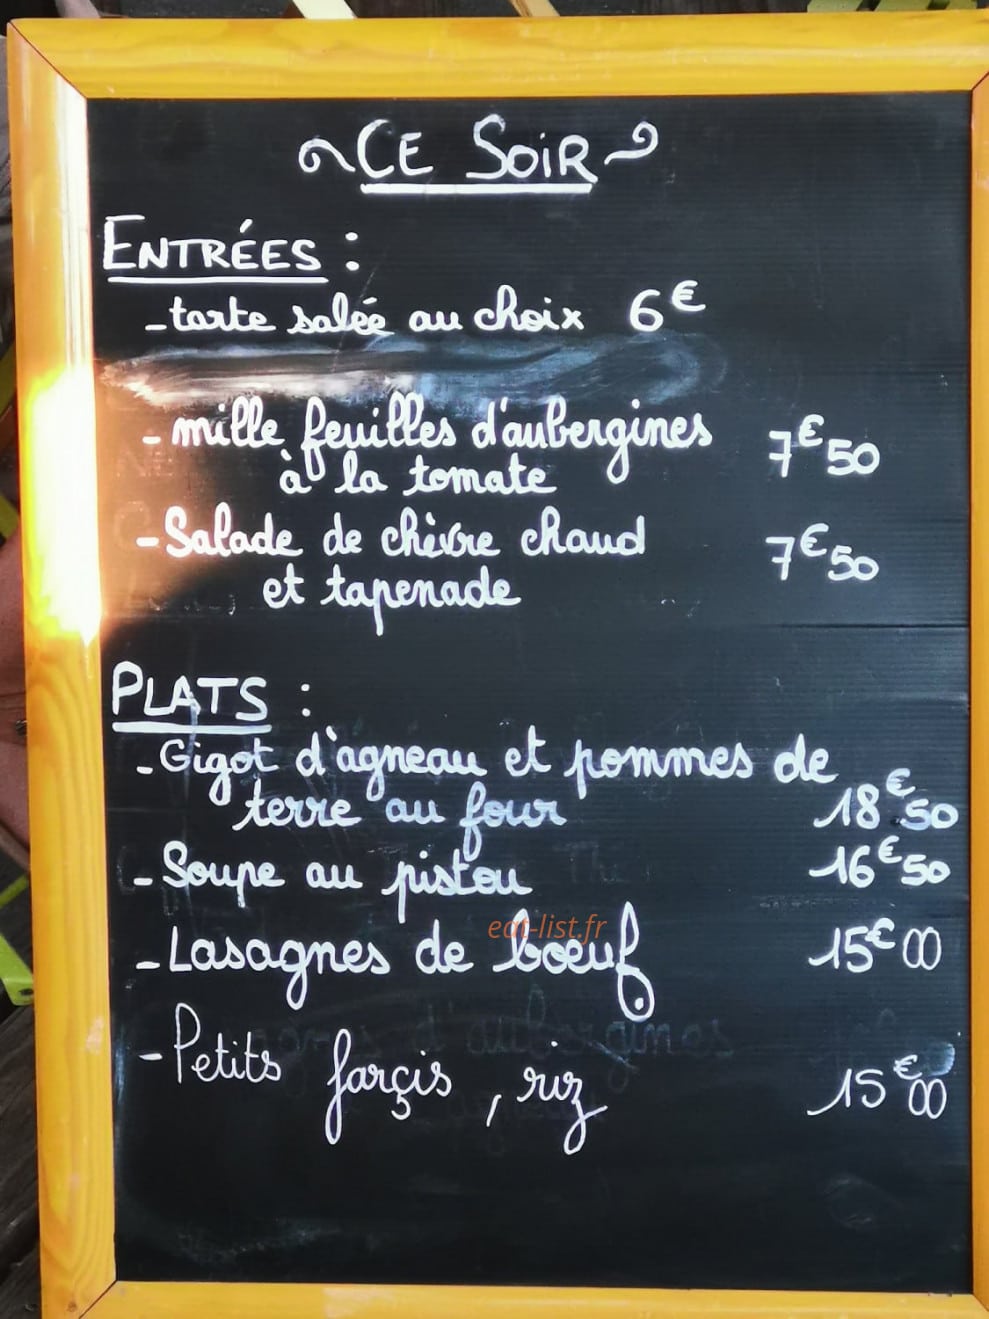 CE SOIR
ENTRÉES :
- tarte salée au choix 6€
- mille feuilles d'aubergines
à la tomate 7€50
- Salade de chèvre chaud 7€50
et tapenade
PLATS :
- Gigot d'agneau et pommes de
terre au four 18€50
- Soupe au pistou 16€50
eat-list.fr
- Lasagnes de bœuf. 15€00
- Petits farçis, riz 15€00